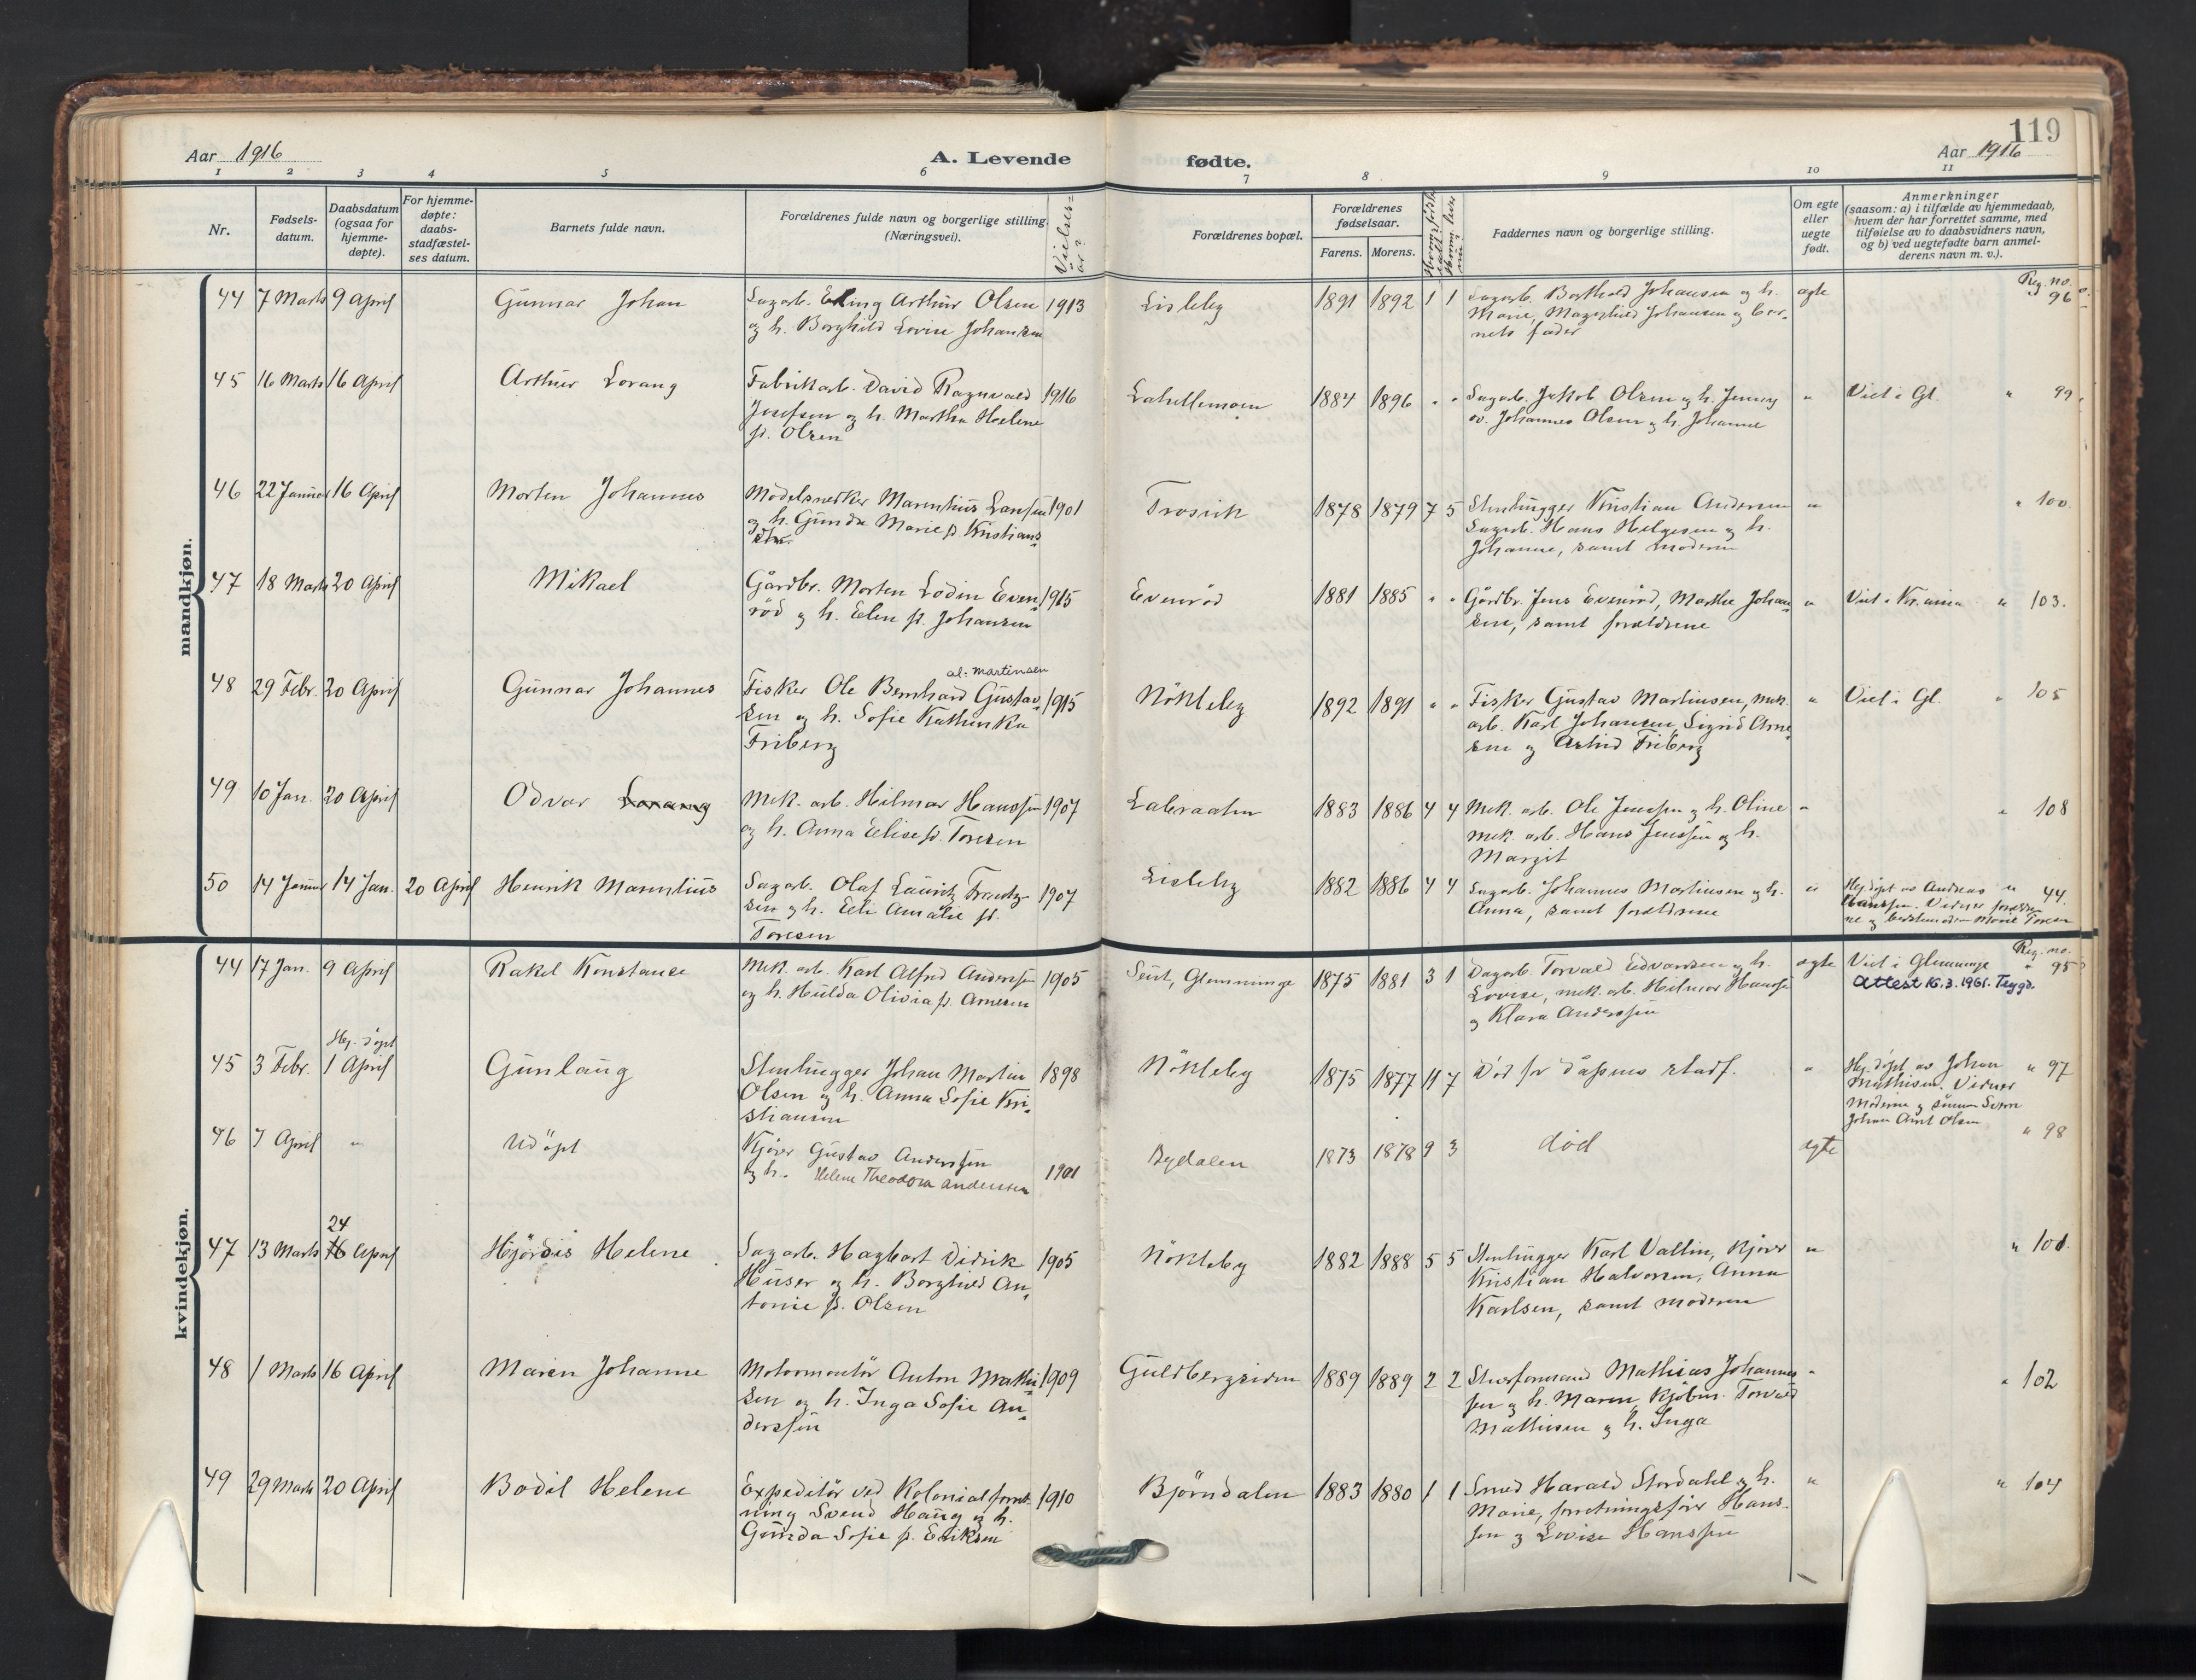 119
Aar 1916
A. Levende
fødte.
Aar 1916
1 2 3 4 5 6 7 8 9 10 11
Nr.
Fødsels-
datum.
Daabsdatum
(ogsaa for
hjemme-
døpte).
For hjemme-
døpte:
daabs-
stadfæstel-
ses datum.
Barnets fulde navn.
Forældrenes fulde navn og borgerlige stilling.
(Næringsvei).
Vielses-
år?
Forældrenes bopæl.
Forældrenes
fødselsaar.
Farens. Morens.
Faddernes navn og borgerlige stilling.
Om egte
eller
uegte
født.
Anmerkninger
(saasom: a) i tilfælde av hjemmedaab,
hvem der har forrettet samme, med
tilføielse av to daabsvidners navn,
og b) ved uegtefødte barn anmel-
derens navn m. v.).
mandkjøn.
44 7 Marts 9 April Gunnar Johan
Sagarb. Erling Arthur Olsen 1913
og h. Borghild Lovise Johansen
Lisleby 1891 1892 1 1
Sagarb. Barthold Johansen og h.
Marie, Magnhild Johansen og bar-
nets fader
egte
Reg. no.
" 96
45 16 Marts 16 April Arthur Lorang
Fabrikarb. David Ragnvald 1916
Josefsen og h. Martha Helene
f. Olsen
Lahellemoen 1884 1896 " "
Sagarb. Jakob Olsen og h. Jenny
av. Johannes Olsen og h. Johanne
" Viet i Gl. " 99
46 22 Januar 16 April Morten Johannes
Modelsnekker Marentius Larsen 1901
og h. Gunda Marie f. Kristian-
sen
Trosvik 1878 1879 7 5
Stenhugger Kristian Andersen
Sagarb. Hans Helgesen og h.
Johanne, samt moderen
" " 100.
47 18 Marts 20 April Mikael
Gårdbr. Morten Lodin Even- 1915
röd og h. Elen f. Johansen
Evenröd 1881 1885 " "
Gårdbr. Jens Evenröd, Marthe Johan-
sen, samt forældrene
" Viet i Kr.ania " 103.
48 29 Febr. 20 April Gunnar Johannes
al: Martinsen
Fisker Ole Bernhard Gustav- 1915
sen og h. Sofie Kathinka
Friberg
Nökleby 1892 1891 " "
Fisker Gustav Martinsen, mek.
arb. Karl Johansen, Sigrid Arne-
sen og Astrid Friberg
" Viet i Gl. " 105
49 10 Jan. 20 April Odvar Lorang
Mek. arb. Hilmar Hanssen 1907
og h. Anna Elise f. Toresen
Labraaten 1883 1886 4 4
Mek. arb. Ole Jenssen og h. Oline
mek. arb. Hans Jenssen og h.
Margit
" " 108
50 14 Januar 14 Jan. 20 April Henrik Marentius
Sagarb. Olaf Lauritz Frantz- 1907
sen og h. Elli Amalie f.
Toresen
Lisleby 1882 1886 4 4
Sagarb. Johannes Martinsen og h.
Anna, samt forældrene
" Hj. döpt av Andreas " 44.
Hanssen. Vidner forældre-
ne og bedstemoderen Marie Toresen
kvindekjøn.
44 17 Jan. 9 April Rakel Konstanse
Mek. arb. Karl Alfred Anderssen 1905
og h. Hulda Olivia f. Arnesen
Seut, Glemminge 1875 1881 3 1
Dagarb. Torvald Edvardsen og h.
Lovise, mek. arb. Hilmar Hanssen
og Klara Anderssen
egte Viet i Glemminge Reg. no. " 95
Attest 16.3.1961. Trygd.
Hj. döpt
45 3 Febr. 1 April Gunlaug
Stenhugger Johan Martin 1898
Olsen og h. Anna Sofie Kri-
stiansen
Nökleby 1875 1877 11 7
Död för dåpens stadf.
" Hj. döpt av Johan " 97
Mathisen. Vidner
Moderen og sönnen Svern
Johan Arnt Olsen
46 7 April " Udöpt
Kjörer Gustav Anderssen
og h. Helene Theodora Andersen 1901
Bydalen 1873 1878 9 3
död egte " 98
24
47 13 Marts 16 April Hjördis Helene
Sagarb. Hagbart Didrik 1905
Huser og h. Borghild An-
tonie f. Olsen
Nökleby 1882 1888 5 5
Stenhugger Karl Vallin, kjörer
Kristian Halvorsen, Anna
Karlsen, samt moderen
" " 101.
48 1 Marts 16 April Maren Johanne
Motormontör Anton Mathi- 1909
sen og h. Inga Sofie An-
derssen
Guldbergsiden 1889 1889 2 2
Stuerformand Mathias Johannes-
sen og h. Maren, kjöbm. Torvald
Mathisen og h. Inga
" " 102
49 29 Marts 20 April Bodil Helene
Expeditör ved Kolonialforret- 1910
ning Svend Haug og h.
Gunda Sofie f. Eriksen
Björndalen 1883 1880 1 1
Smed Harald Stordahl og h.
Marie, forretningsförer Hans-
sen og Lovise Hanssen
" " 104